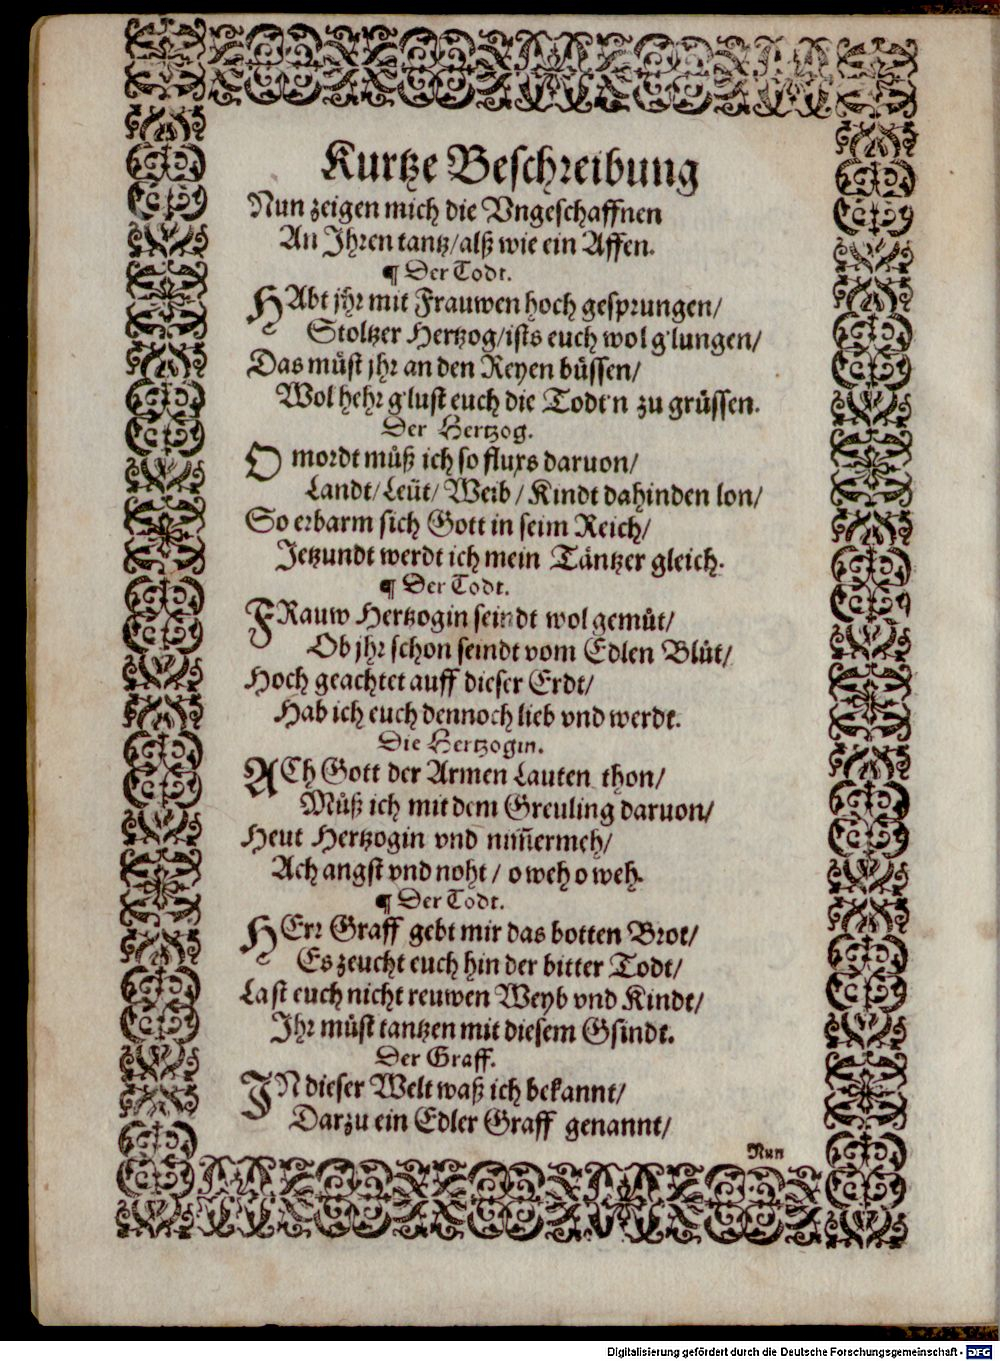 Kurtze Beschreibung
Nun zeigen mich die Vngeschaffnen
An Jhren tantz/alß wie ein Affen.
¶ Der Todt.
HAbt jhr mit Frauwen hoch gesprungen/
Stoltzer Hertzog/ists euch wol g'lungen/
Das müst jhr an den Reyen büssen/
Wol hehr g'lust euch die Todt'n zu grüssen.
Der Hertzog.
O mordt müß ich so fluxs daruon/
Landt/Leüt/Weib/Kindt dahinden lon/
So erbarm sich Gott in seim Reich/
Jetzundt werdt ich mein Täntzer gleich.
¶ Der Todt.
FRauw Hertzogin seindt wol gemüt/
Ob jhr schon seindt vom Edlen Blüt/
Hoch geachtet auff dieser Erdt/
Hab ich euch dennoch lieb vnd werdt.
Die Hertzogin.
ACh Gott der Armen Lauten thon/
Müß ich mit dem Greuling daruon/
Heut Hertzogin vnd nim̄ermeh/
Ach angst vnd noht/ o weh o weh.
¶ Der Todt.
HErr Graff gebt mir das botten Brot/
Es zeucht euch hin der bitter Todt/
Last euch nicht reuwen Weyb vnd Kindt/
Jhr müst tantzen mit diesem Gsindt.
Der Graff.
JN dieser Welt waß ich bekannt/
Darzu ein Edler Graff genannt/
Nun
Digitalisierung gefördert durch die Deutsche Forschungsgemeinschaft - DFG